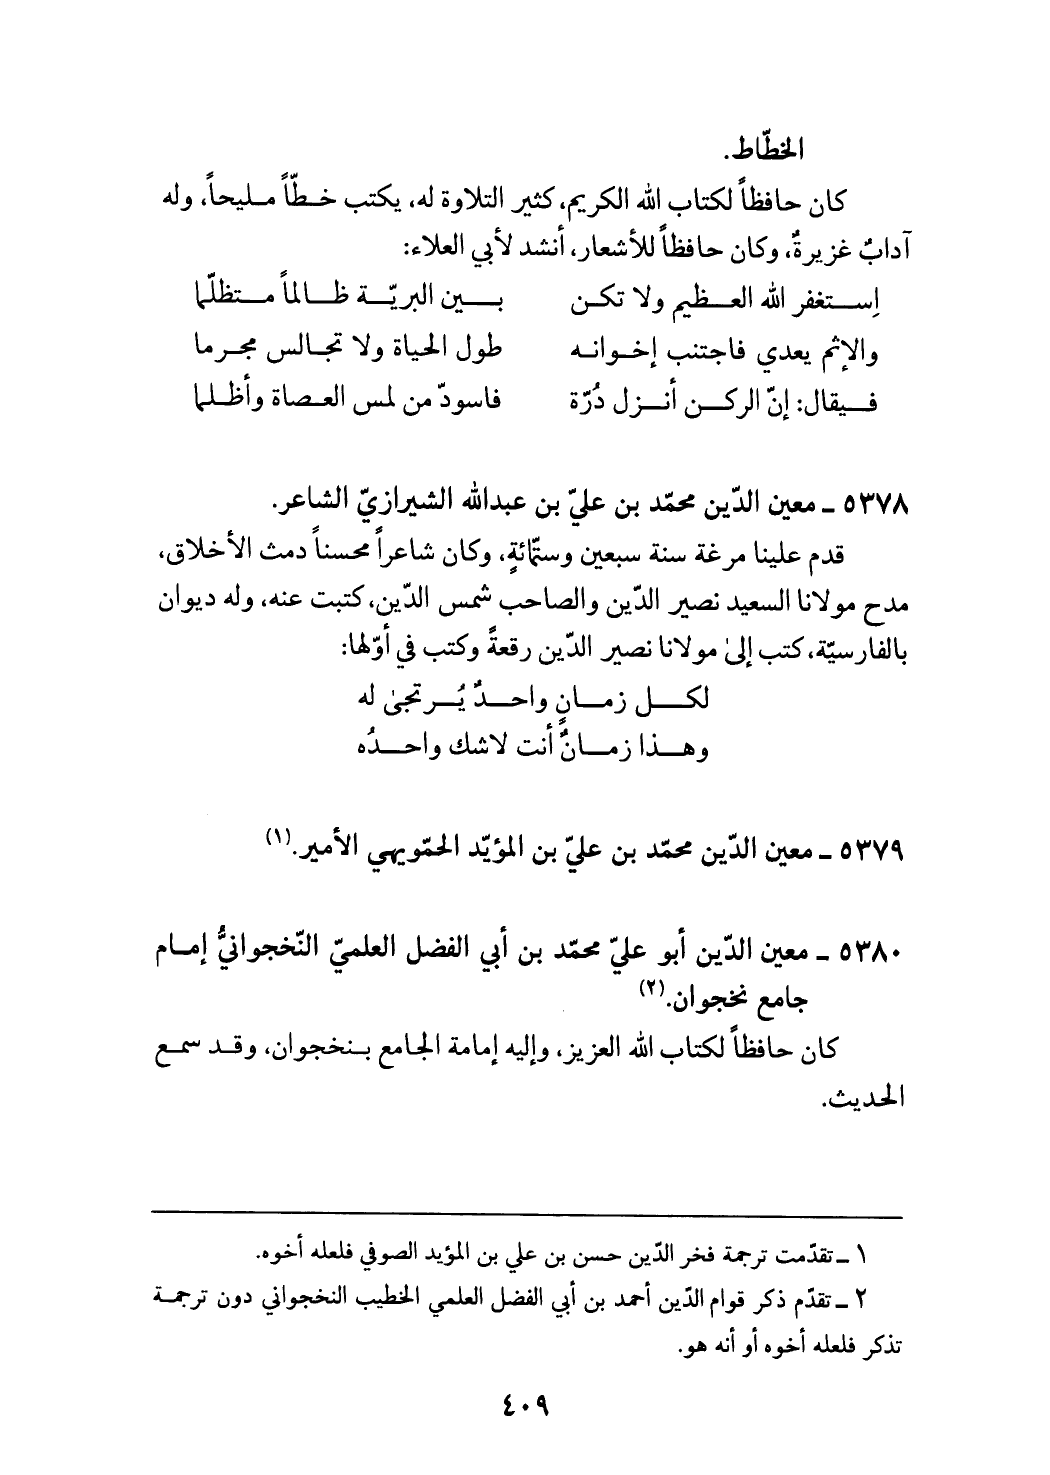 الخطّاط.
كان حافظاً لكتاب الله الكريم، كثير التلاوة له، يكتب خطّاً مليحاً، وله
آدابٌ غزيرةٌ، وكان حافظاً للأشعار، أنشد لأبي العلاء:
إستغفر الله العظيم ولا تكن بين البريّة ظالماً متظلّما
والإثم يعدي فاجتنب إخوانه طول الحياة ولا تجالس مجرما
فيقال: إنّ الركن أنزل دُرّة فاسودّ من لمس العصاة وأظلما
٥٣٧٨ ـ معين الدّين محمّد بن عليّ بن عبدالله الشيرازيّ الشاعر.
قدم علينا مرغة سنة سبعين وستّمائةٍ، وكان شاعراً محسناً دمث الأخلاق،
مدح مولانا السعيد نصير الدّين والصاحب شمس الدّين، كتبت عنه، وله ديوان
بالفارسيّة، كتب إلىٰ مولانا نصير الدّين رقعةً وكتب في أوّلها:
لكل زمانٍ واحدٌ يُرتجىٰ له
وهذا زمانٌ أنت لاشك واحدُه
٥٣٧٩ ـ معين الدّين محمّد بن عليّ بن المؤيّد الحمّويهي الأمير.(١)
٥٣٨٠ ـ معين الدّين أبو عليّ محمّد بن أبي الفضل العلميّ النّخجوانيُّ إمام
جامع نخجوان.(٢)
كان حافظاً لكتاب الله العزيز، وإليه إمامة الجامع بنخجوان، وقد سمع
الحديث.
١ ـ تقدّمت ترجمة فخر الدّين حسن بن علي بن المؤيد الصوفي فلعله أخوه.
٢ ـ تقدّم ذكر قوام الدّين أحمد بن أبي الفضل العلمي الخطيب النخجواني دون ترجمة
تذكر فلعله أخوه أو أنه هو.
٤٠٩